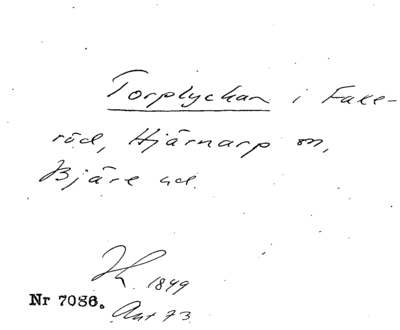 Torplyckan i Faxe-
röd, Hjärnarp sn,
Bjäre hd.
1849
Nr 7086. Ant 73